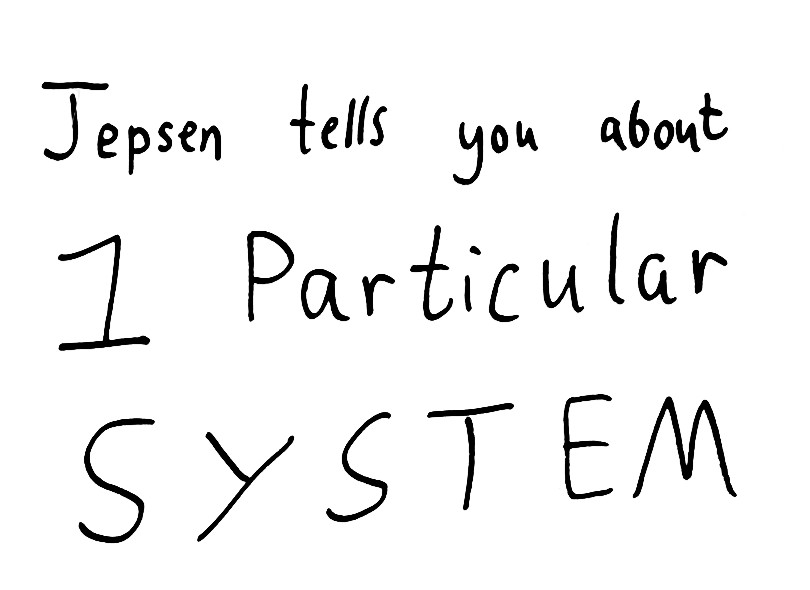 Jepsen tells you about
1 Particular
SYSTEM